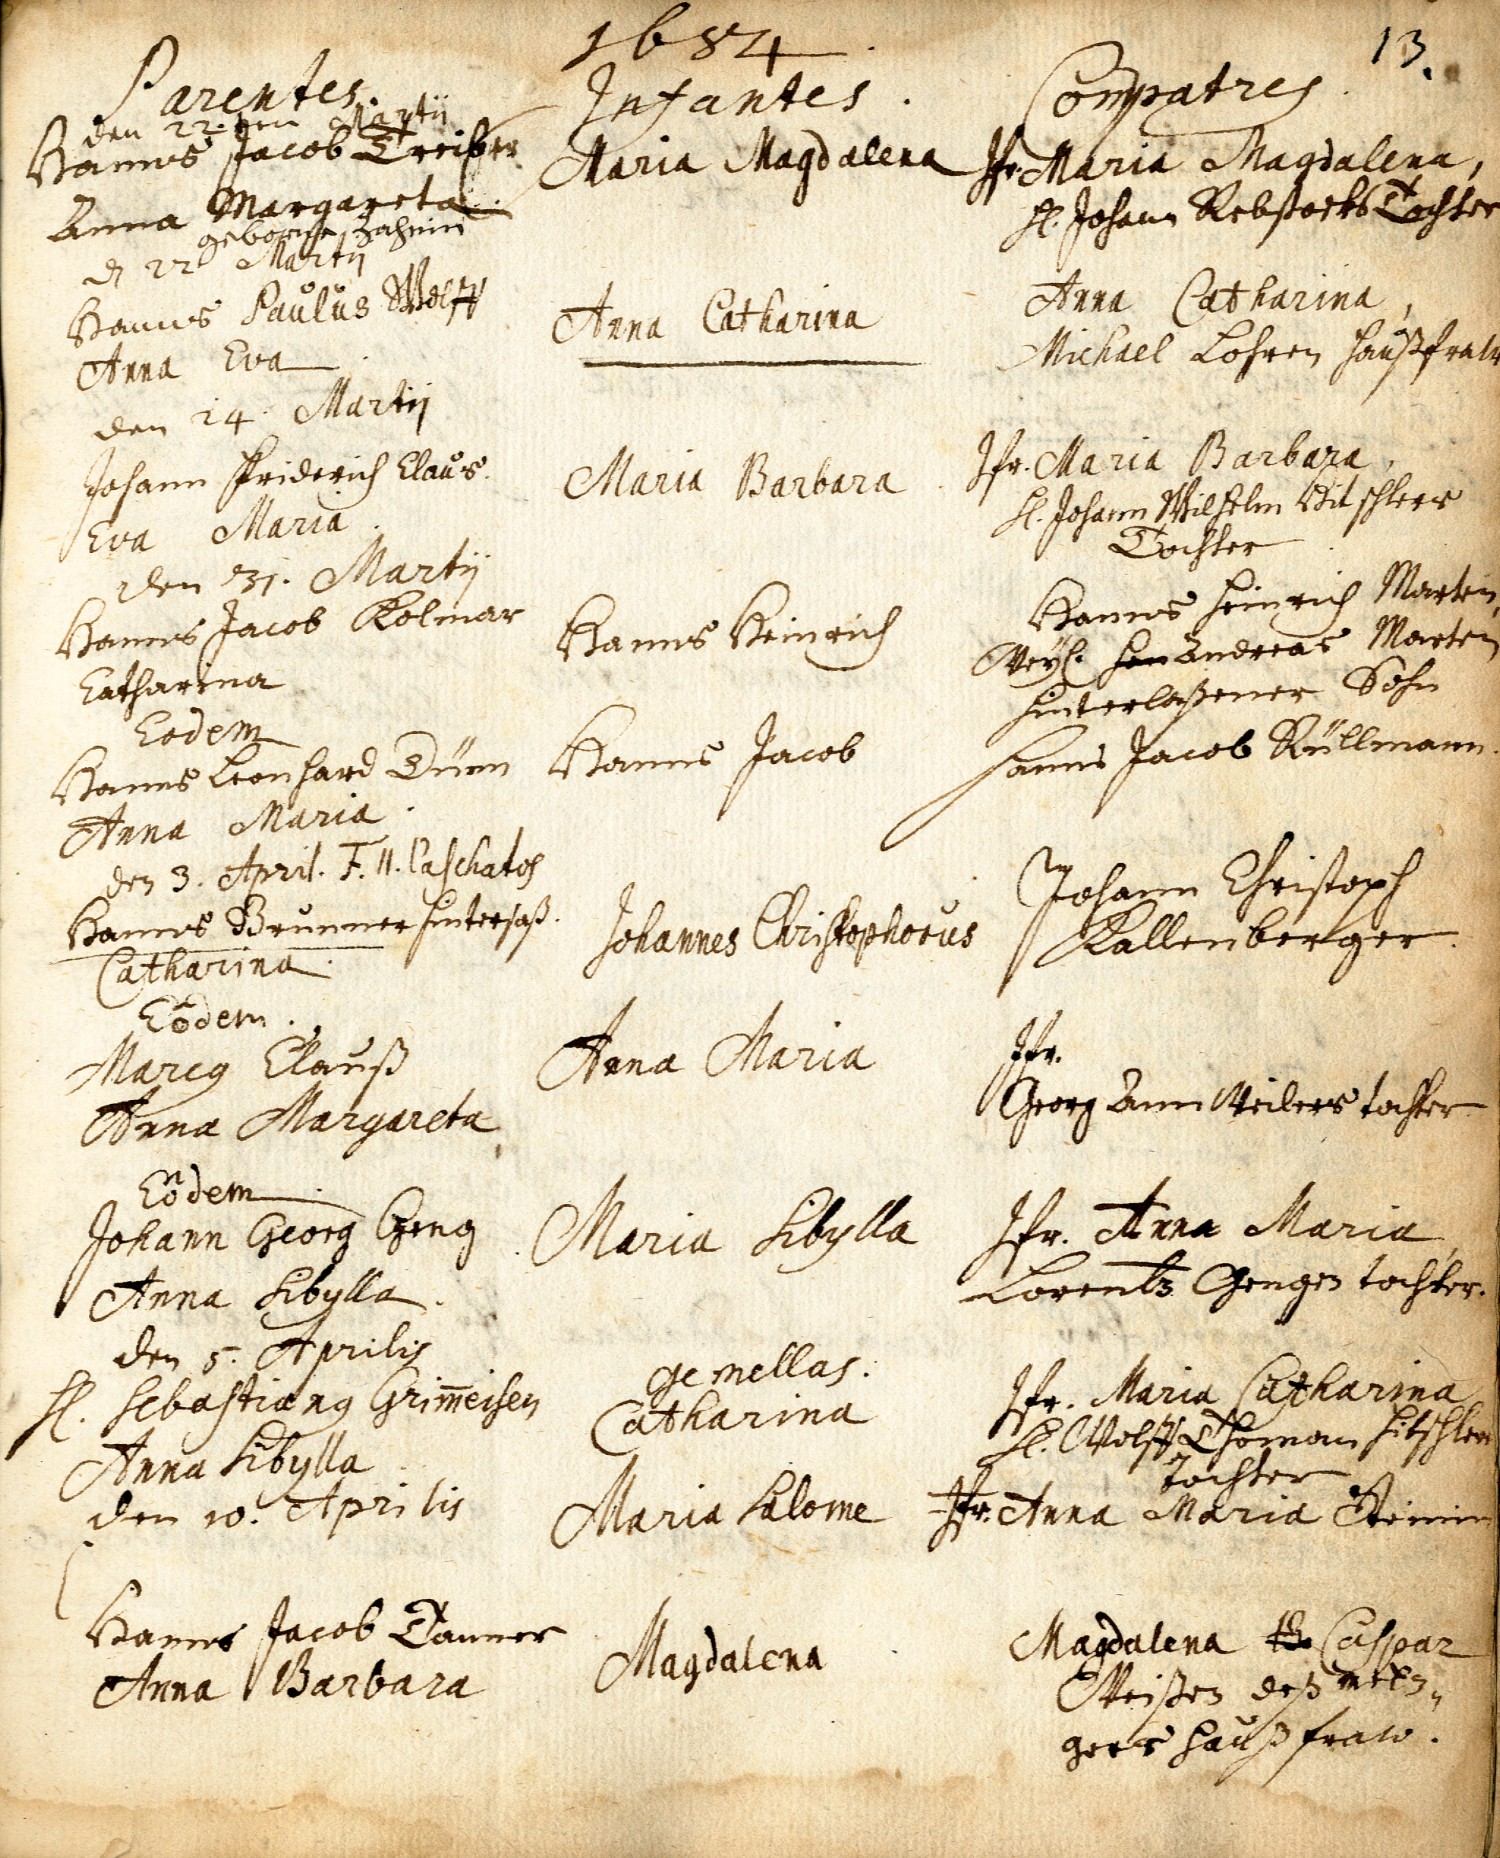 1684
13.
Parentes.
Infantes.
Compatres.
den 22. ten Martij
Hanns Jacob Treiber
Anna Margareta
geborne Zahnin
Maria Magdalena
Jfr. Maria Magdalena,
H. Johann Rebstocks Tochter
d 22 Martij
Hanns Paulus Wolff
Anna Eva
Anna Catharina
Anna Catharina,
Michael Lohren Haußfraw
den 24 Martij
Johann Friderich Claus.
Eva Maria.
Maria Barbara
Jfr. Maria Barbara,
H. Johann Wilhelm
Tochter
den 31. Martij
Hanns Jacob Kolmar
Catharina
Hanns Heinrich
Hanns Heinrich Martin,
Weyl. Andreas Martin
hinterlaßener Sohn
Eodem
Hanns Leonhard Dürn
Anna Maria.
Hanns Jacob
Hanns Jacob Rüllmann.
den 3. April. F. II. Paschatos
Hanns Brunner hintersaß.
Catharina.
Johannes Christophorus
Johann Christoph
Kallenberger.
Eodem.
Marcus Clauß
Anna Margareta
Anna Maria
Jfr.
Georg Weilers tochter
Eodem
Johann Georg Geng
Anna Sibylla.
Maria Sibylla
Jfr. Anna Maria,
Lorentz Gengen tochter.
den 5. Aprilis
H. Sebastianus Grim̄eisen
Anna Sibylla
gemellas.
Catharina
Maria Salome
Jfr. Maria Catharina
H. Wolff Thoman Hitschlers
Tochter
Jfr. Anna Maria Steinin
den 10. Aprilis
Hanns Jacob Danner
Anna Barbara
Magdalena
Magdalena Caspar
Weißen deß metz-
gers Haußfraw.